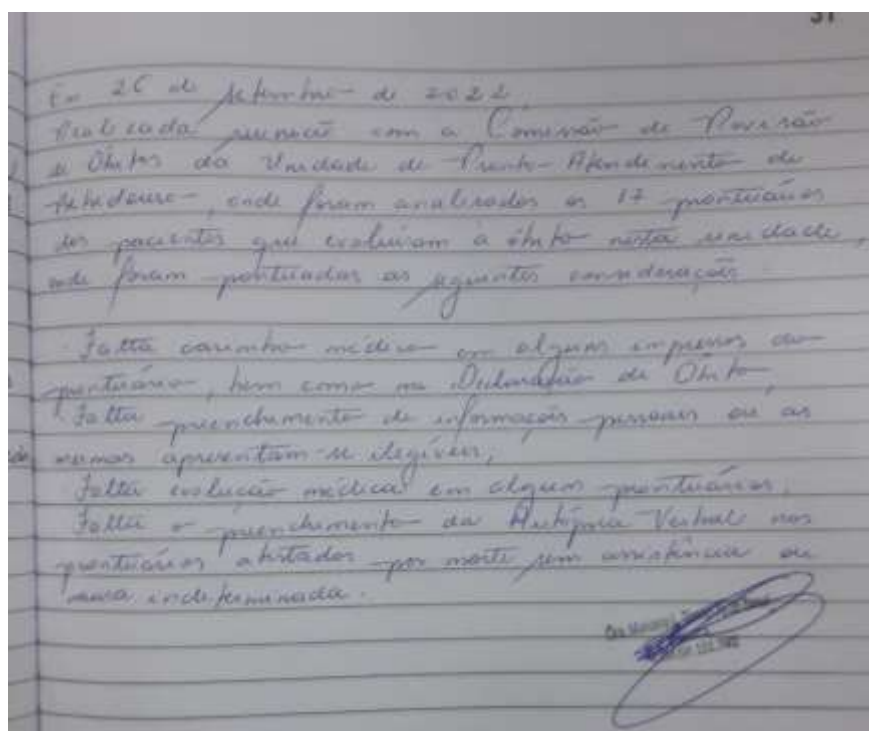 31
Em 26 de setembro de 2022,
Realizada reunião com a Comissão de Revisão
de Óbitos da Unidade de Pronto Atendimento de
Bebedouro, onde foram analisados os 17 prontuários
dos pacientes que evoluíram à óbito nesta unidade,
onde foram pontuadas as seguintes considerações
Falta carimbo médico em alguns impressos do
prontuário, bem como na Declaração de Óbito,
Falta preenchimento de informações pessoais ou as
mesmas apresentam-se ilegíveis;
Falta evolução médica em alguns prontuários;
Falta o preenchimento da Autópsia Verbal nos
prontuários atestados por morte sem assistência ou
causa indeterminada.
Dra.